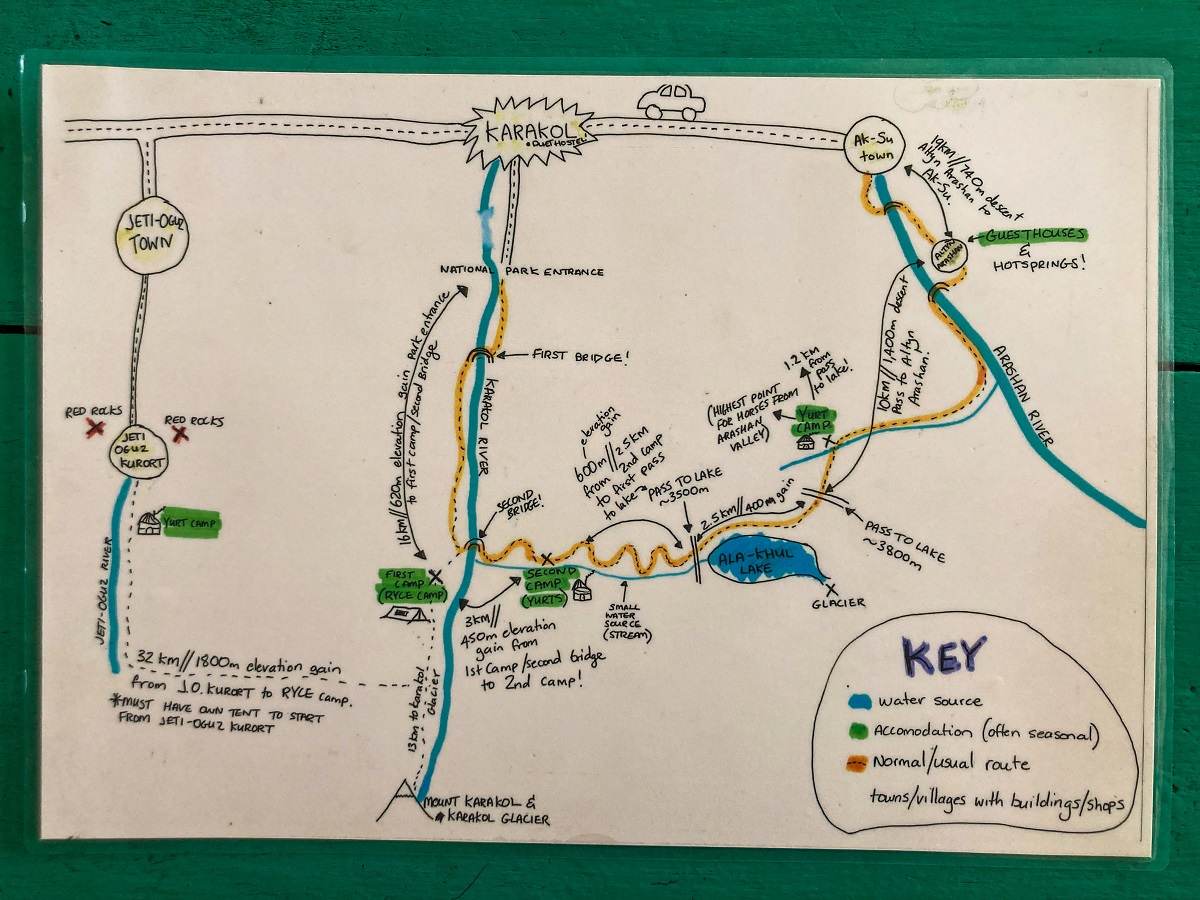 KARAKOL
• DUET HOSTEL!
Ak-Su
town
19km//740m descent
Altyn Arashan to
Ak-Su.
JETI-OGUZ
TOWN
ALTYN
ARASHAN
GUESTHOUSES
&
HOTSPRINGS!
NATIONAL PARK ENTRANCE
FIRST BRIDGE!
16km//620m elevation gain park entrance
to first camp/second Bridge
KARAKOL RIVER
10km//1,400m descent
Pass to Altyn
Arashan.
ARASHAN RIVER
1.2 KM
from
pass
to lake!
(HIGHEST POINT
FOR HORSES FROM
ARASHAN
VALLEY)
YURT
CAMP
RED ROCKS
RED ROCKS
JETI
OGUZ
KURORT
YURT CAMP
JETI-OGUZ RIVER
elevation
gain
600m//2.5KM
from 2nd camp
to first pass
to lake
PASS TO LAKE
~3500m
2.5km//400m gain
SECOND
BRIDGE!
PASS TO LAKE
~3800m
ALA-KHUL
LAKE
GLACIER
FIRST
CAMP
(RYCE CAMP)
SECOND
CAMP
(YURTS)
SMALL
WATER
SOURCE
(STREAM)
3KM//
450m elevation
gain from
1st Camp/second bridge
to 2nd camp!
32 km//1800m elevation gain
from J.O. KURORT to RYCE camp.
*MUST HAVE OWN TENT TO START
FROM JETI-OGUZ KURORT
13km to Karakol
Glacier
MOUNT KARAKOL &
KARAKOL GLACIER
KEY
water source
Accomodation (often seasonal)
Normal/usual route
towns/villages with buildings/shops